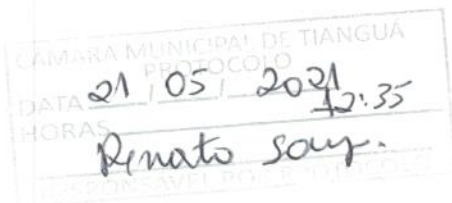 CÂMARA MUNICIPAL DE TIANGUÁ
PROTOCOLO
DATA 21 / 05 / 2021
HORAS 12:35
Renato
RESPONSÁVEL POR PROTOCOLO